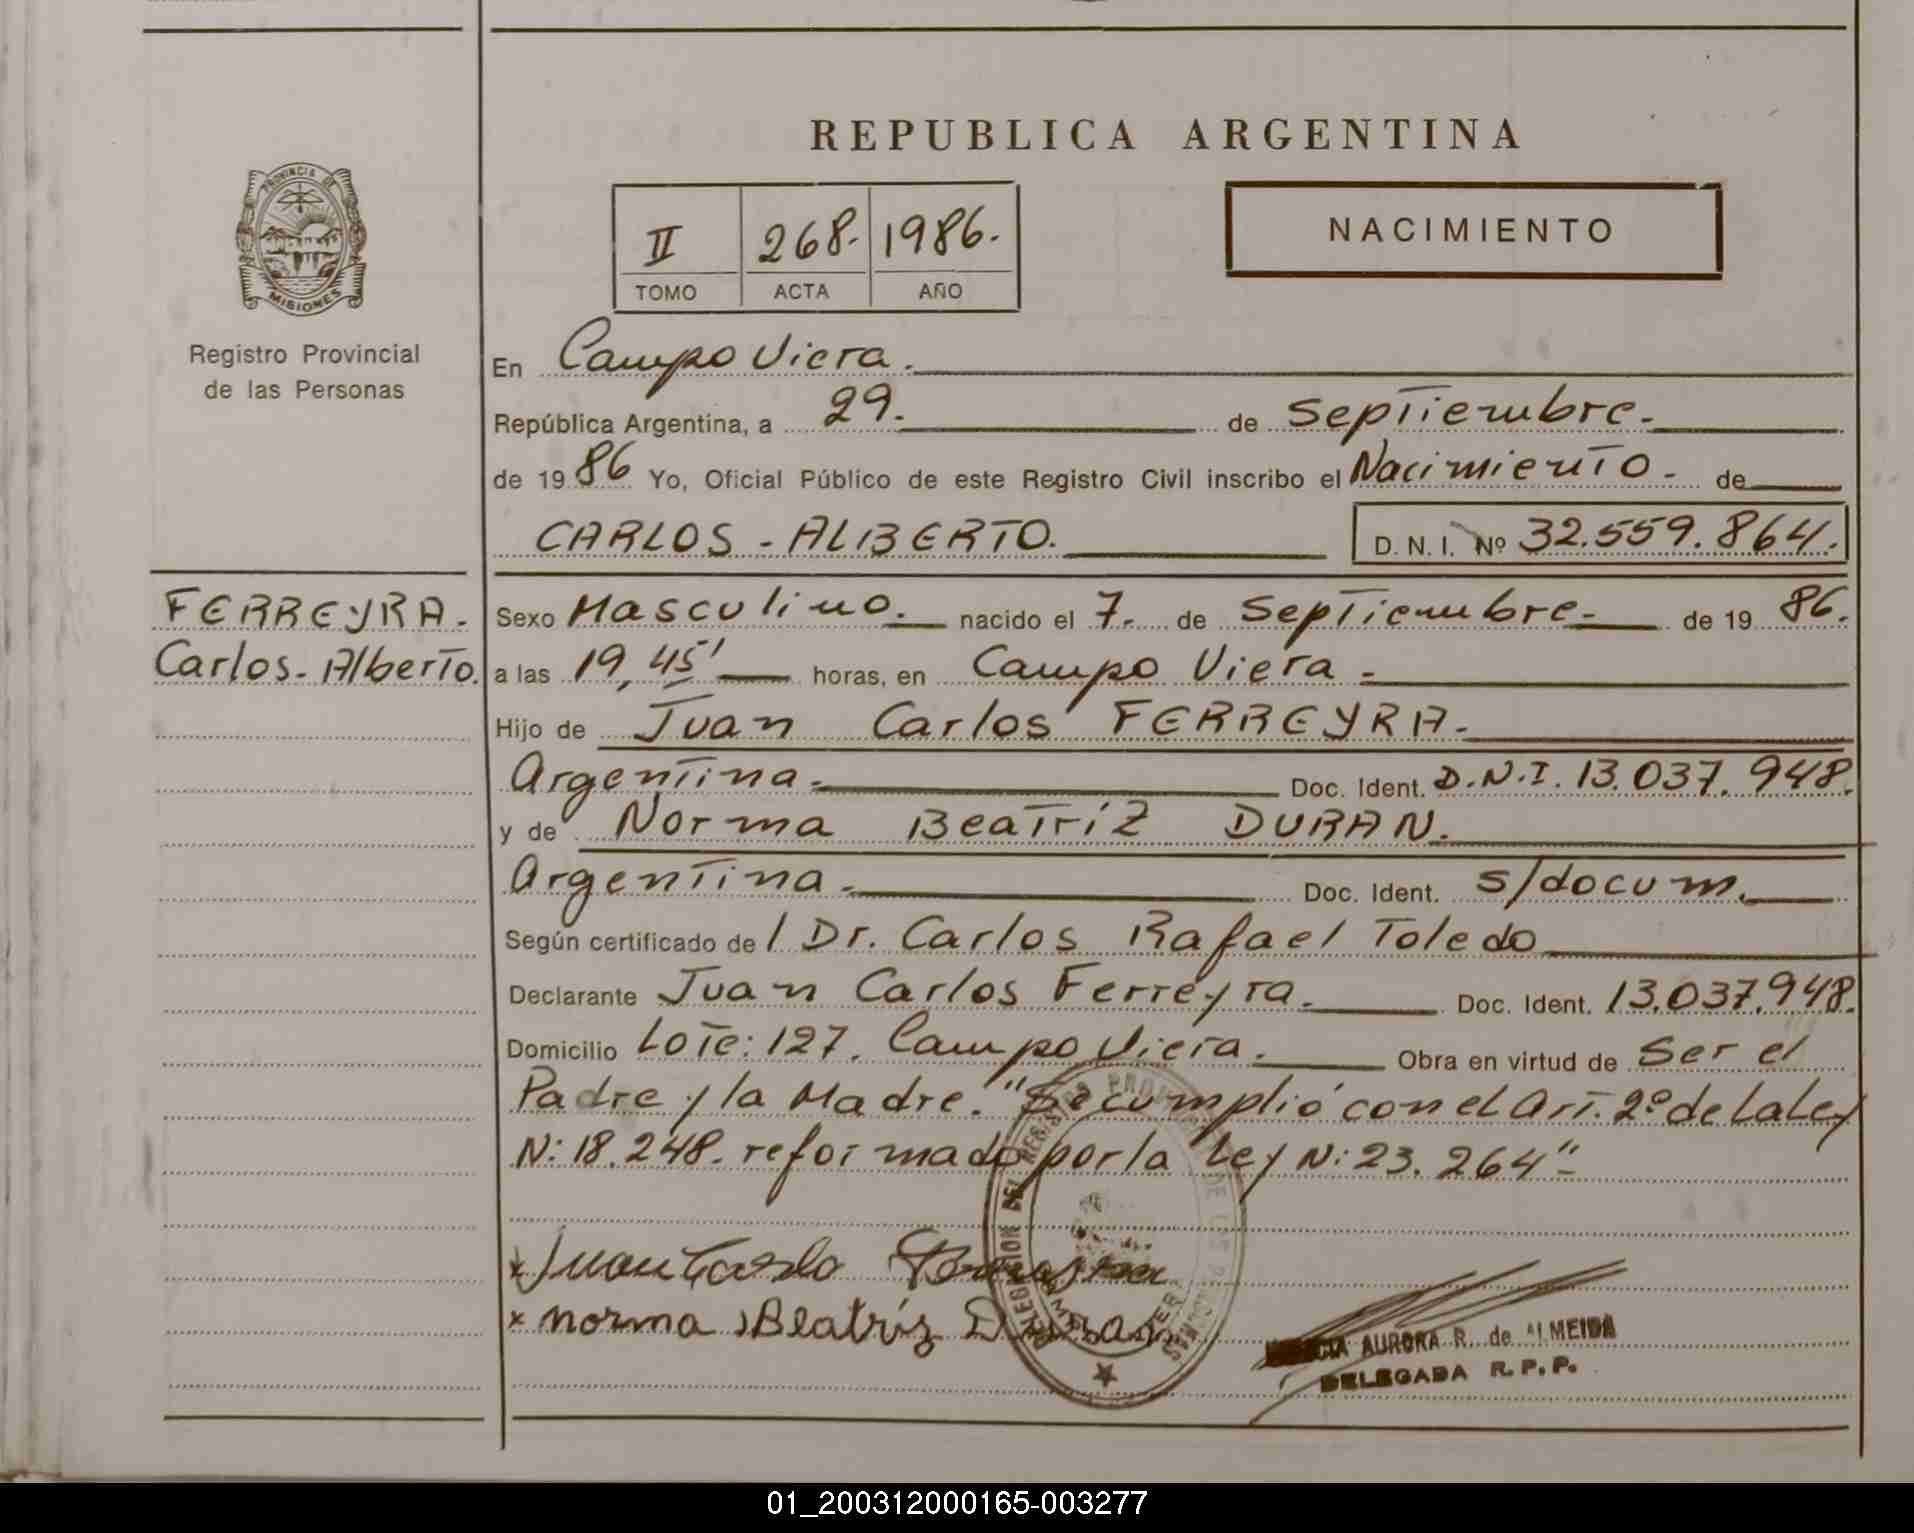 REPUBLICA ARGENTINA
PROVINCIA DE
MISIONES
Registro Provincial
de las Personas
II 268. 1986.
TOMO ACTA AÑO
NACIMIENTO
En Campo Viera.
República Argentina, a 29. de Septiembre.
de 19 86 Yo, Oficial Público de este Registro Civil inscribo el Nacimiento. de
CARLOS - ALBERTO. D. N. I. Nº 32.559.864.
FERREYRA.
Carlos-Alberto.
Sexo Masculino. nacido el 7. de Septiembre de 19 86.
a las 19,45' horas, en Campo Viera.
Hijo de Juan Carlos FERREYRA.
Argentina. Doc. Ident. D.N.I. 13.037.948.
y de Norma Beatríz DURAN.
Argentina. Doc. Ident. s/docum.
Según certificado de / Dr. Carlos Rafael Toledo
Declarante Juan Carlos Ferreyra. Doc. Ident. 13.037.948.
Domicilio Lote: 127. Campo Viera. Obra en virtud de Ser el
Padre y la Madre. "Se cumplió con el Art. 2º de la Ley
N: 18.248. reformado por la Ley N: 23.264"
x Juan Carlo
x norma Beatríz Duran
DELEGACION DEL REGISTRO PROVINCIAL DE LAS
AURORA R. de ALMEIDA
DELEGADA R. P. P.
01_200312000165-003277